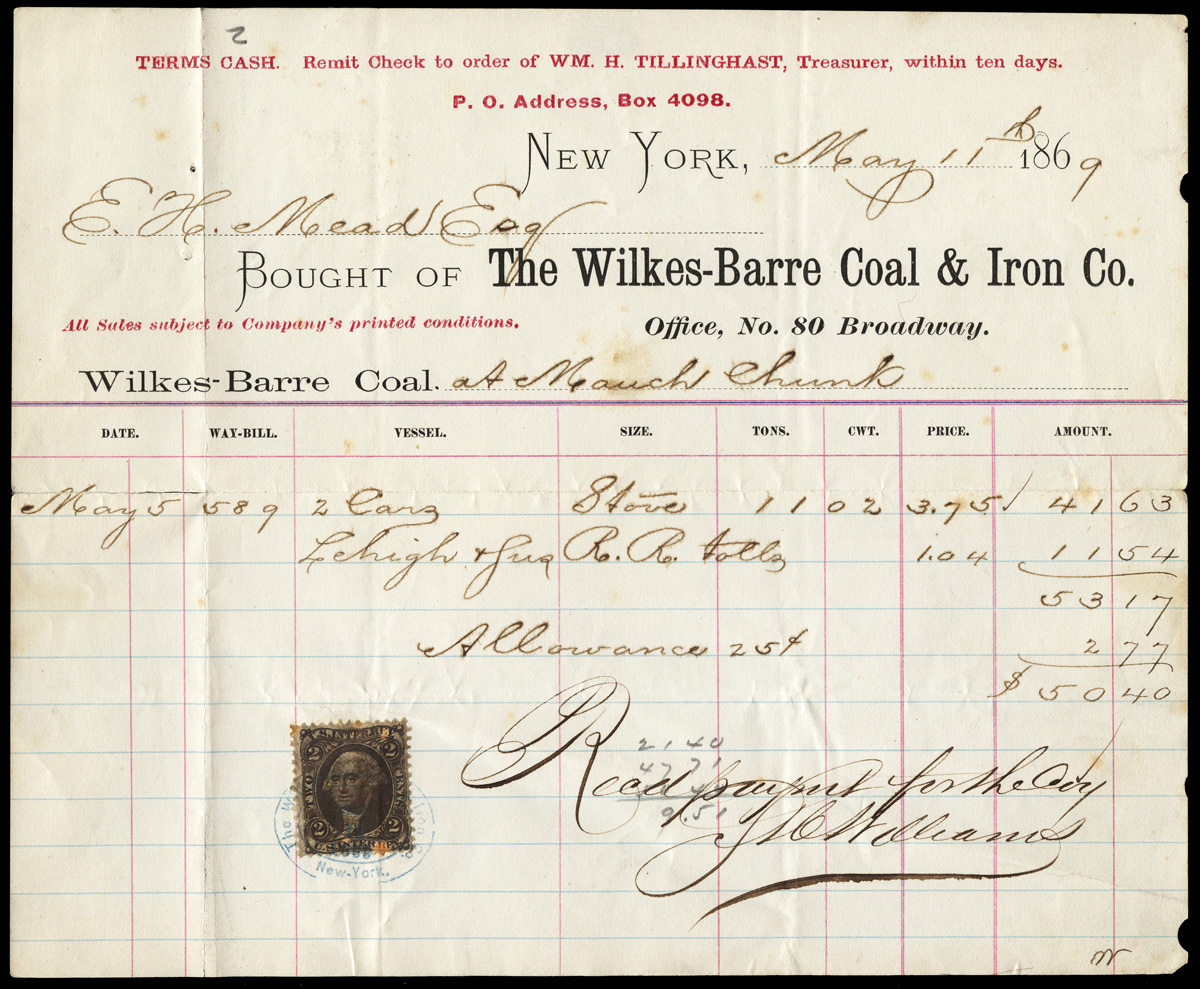 2
TERMS CASH. Remit Check to order of WM. H. TILLINGHAST, Treasurer, within ten days.
P. O. Address, Box 4098.
NEW YORK, May 11th 1869
E. H. Mead Esq
BOUGHT OF The Wilkes-Barre Coal & Iron Co.
All Sales subject to Company's printed conditions. Office, No. 80 Broadway.
WILKES-BARRE COAL. at Mauch Chunk
DATE. WAY-BILL. VESSEL. SIZE. TONS. CWT. PRICE. AMOUNT.
May 5 589 2 Cars Stove 11 02 3.75 41 63
Lehigh & Sus R. R. tolls 1.04 11 54
53 17
Allowance 25¢ 2 77
$ 50 40
21 40
47 71
9.51
Recd paymt for the Coy
Williams
U.S. INTER. REV.
2 2
TWO CENTS
2 2
U.S. INTER. REV.
New-York.